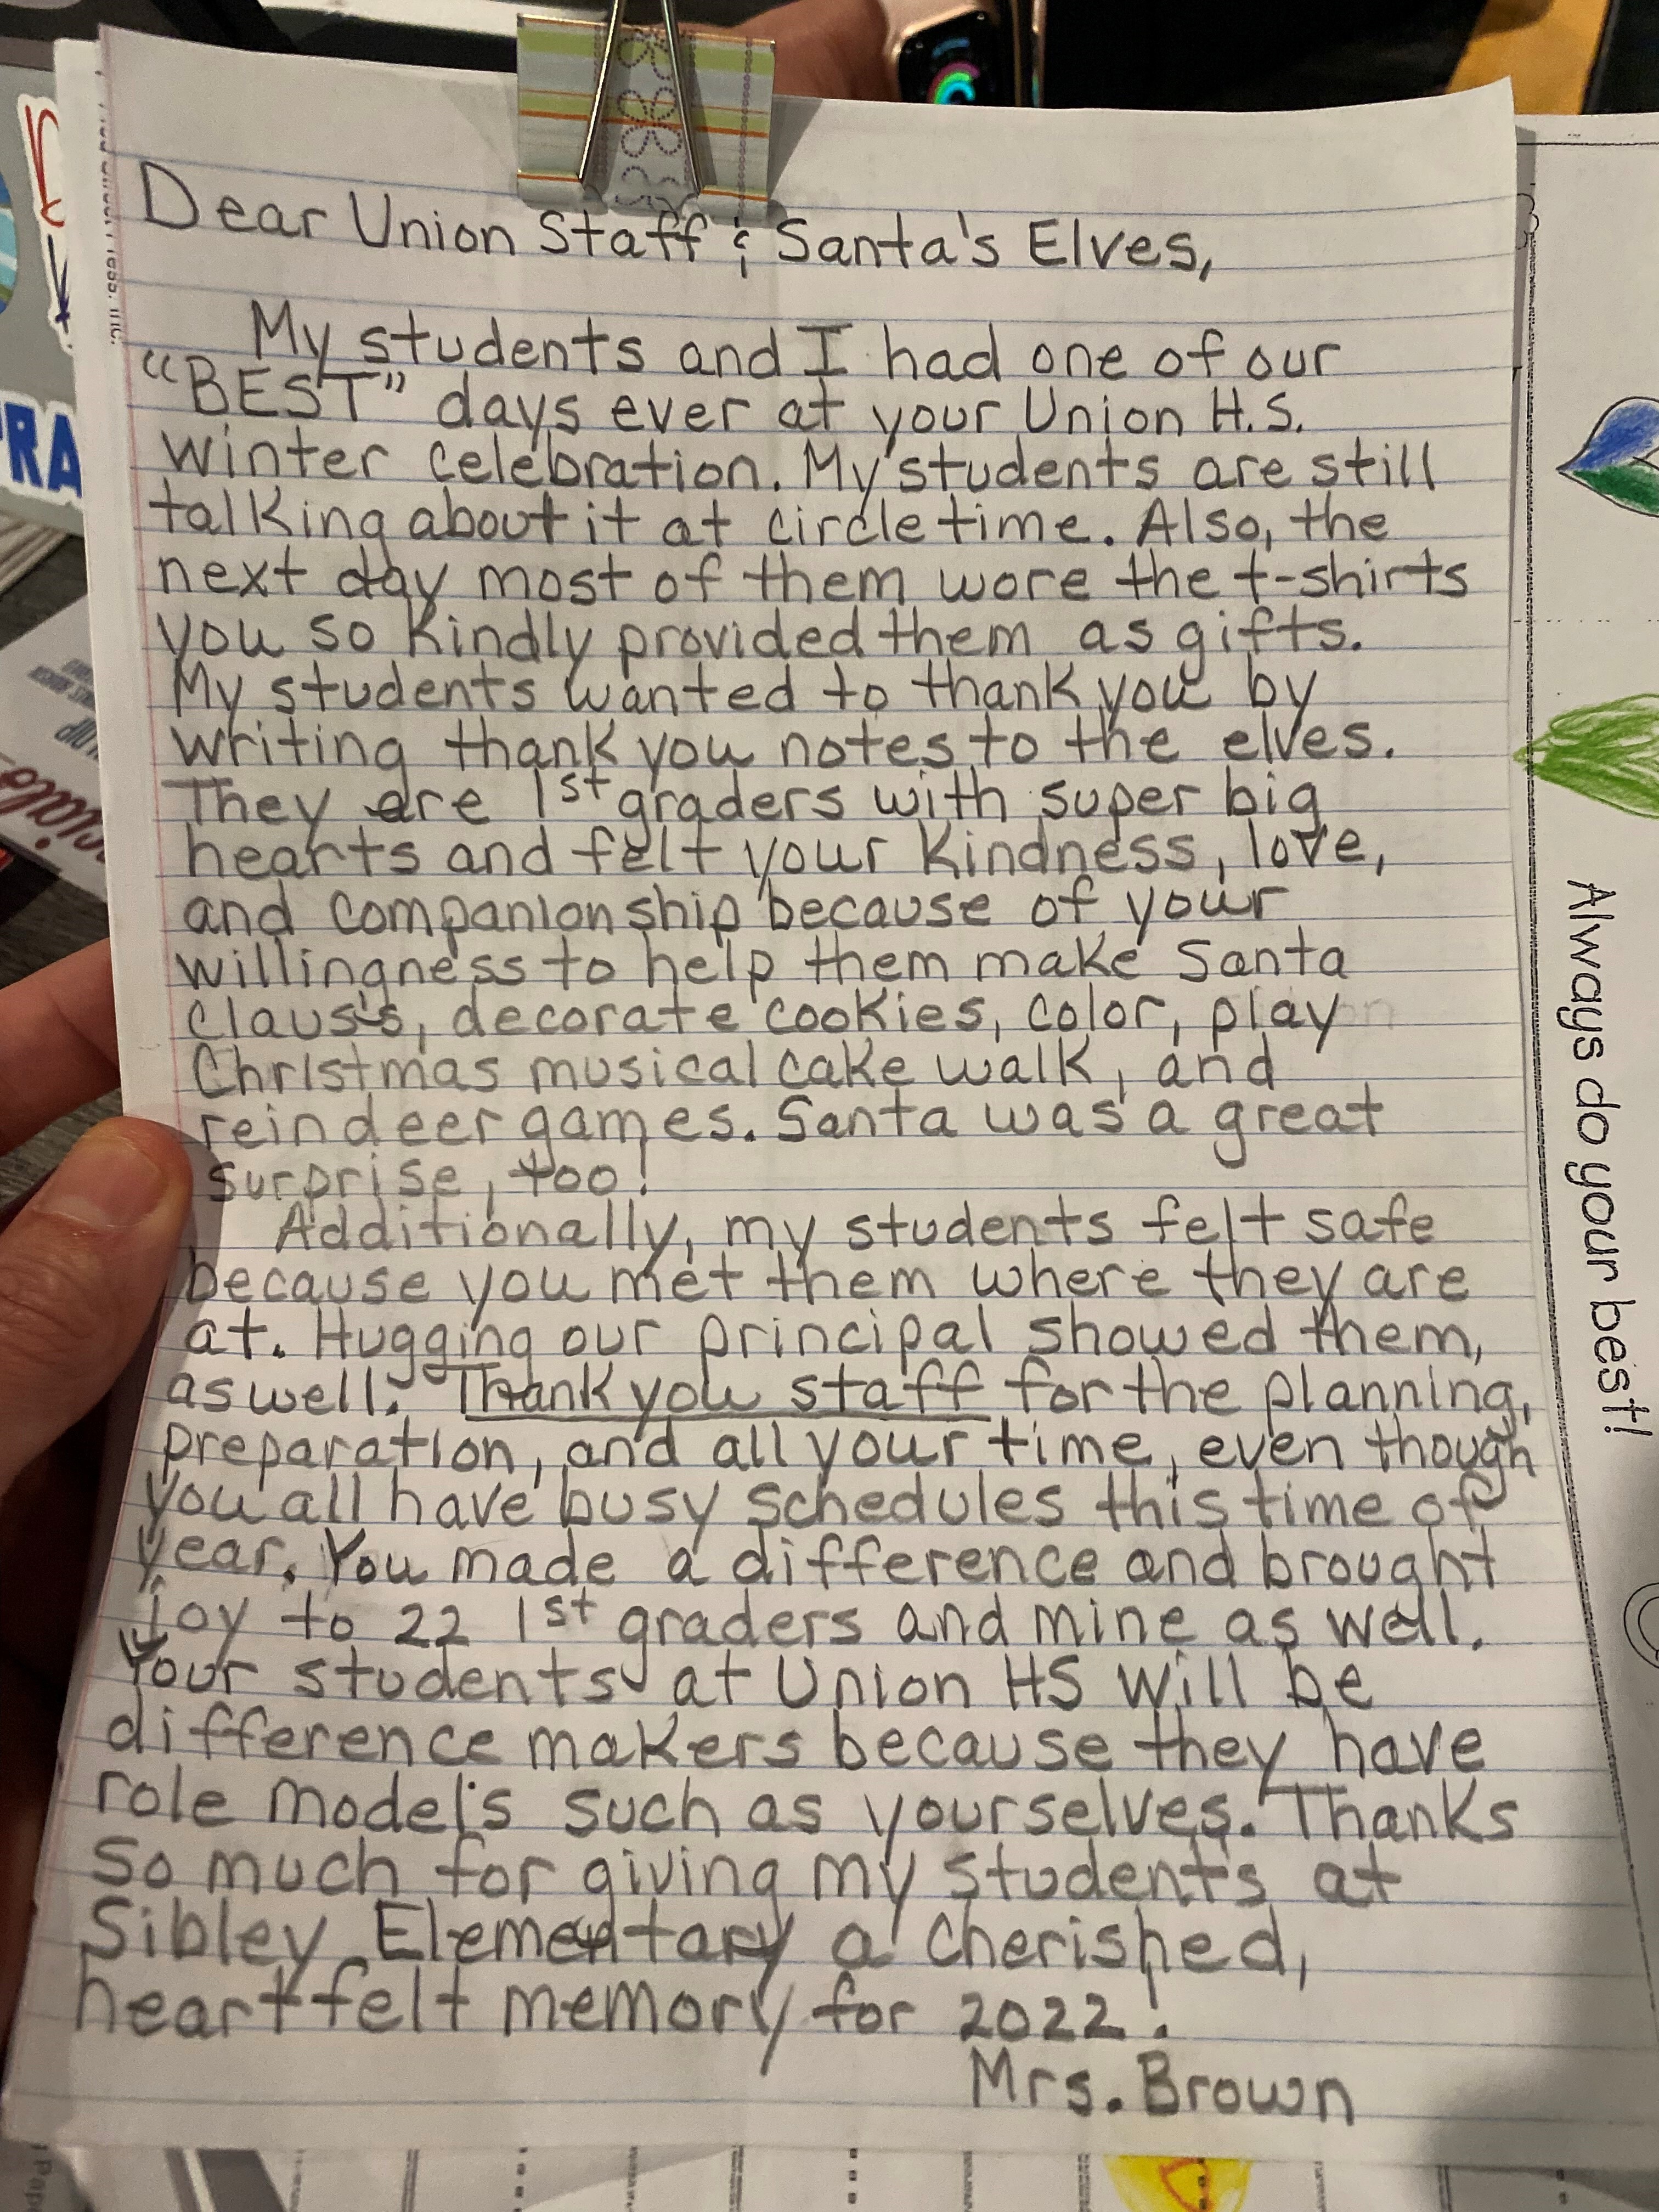 Dear Union Staff & Santa's Elves,
My students and I had one of our
"BEST" days ever at your Union H.S.
winter celebration. My students are still
talking about it at circle time. Also, the
next day most of them wore the t-shirts
you so kindly provided them as gifts.
My students wanted to thank you by
writing thank you notes to the elves.
They are 1st graders with super big
hearts and felt your kindness, love,
and companionship because of your
willingness to help them make Santa
Claus's, decorate cookies, color, play
Christmas musical cake walk, and
reindeer games. Santa was a great
surprise, too!
Additionally, my students felt safe
because you met them where they are
at. Hugging our principal showed them,
as well. Thank you staff for the planning,
preparation, and all your time, even though
you all have busy schedules this time of
year. You made a difference and brought
joy to 22 1st graders and mine as well.
Your students at Union HS will be
difference makers because they have
role models such as yourselves. Thanks
so much for giving my students at
Sibley Elementary a cherished,
heartfelt memory for 2022!
Mrs. Brown
Always do your best!